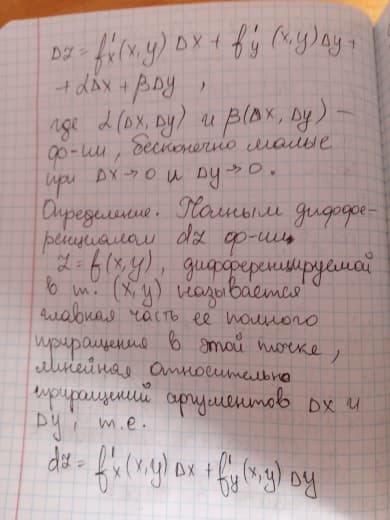 Δz = f'x(x,y) Δx + f'y (x,y) Δy +
+ αΔx + βΔy ,
где α(Δx, Δy) и β(Δx, Δy) –
ф-ии, бесконечно малые
при Δx→0 и Δy→0.
Определение. Полным диффе-
ренциалом dz ф-ии
z = f(x,y), дифференцируемой
в т. (x,y) называется
главная часть ее полного
приращения в этой точке,
линейная относительно
приращений аргументов Δx и
Δy, т.е.
dz = f'x(x,y) Δx + f'y(x,y) Δy